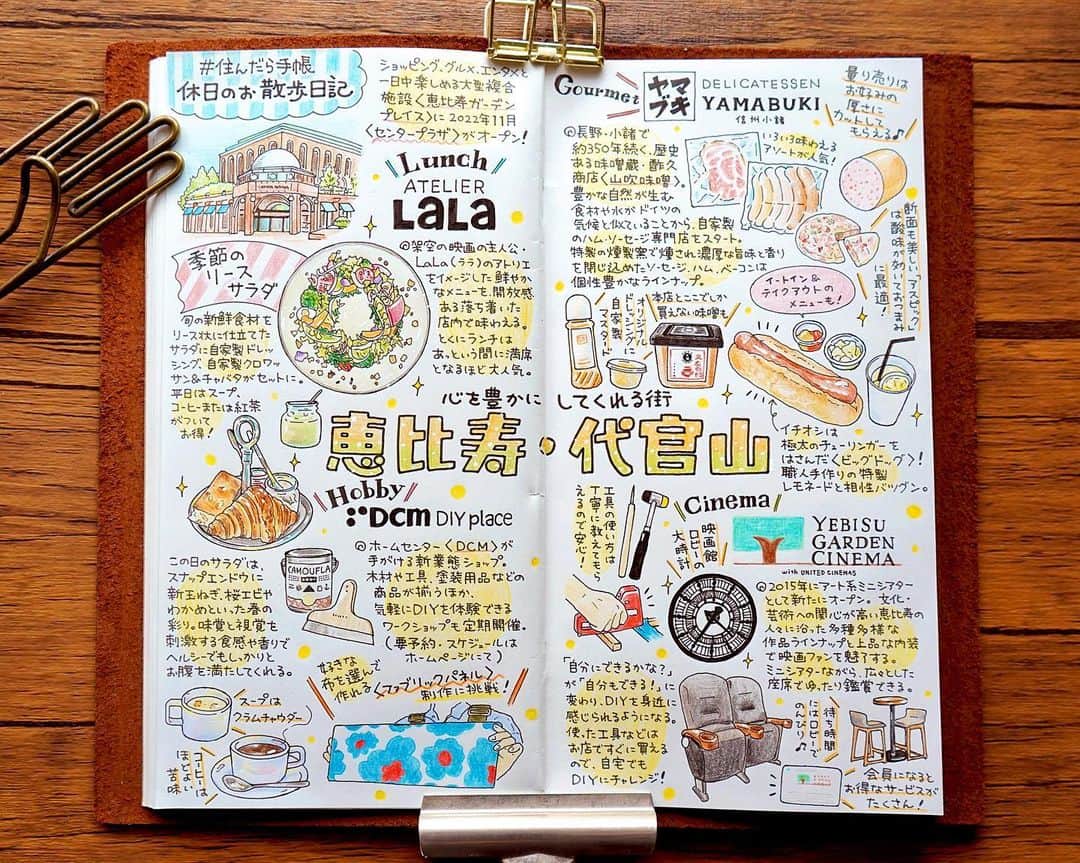 #住んだら手帳
休日のお散歩日記
ショッピング、グルメ、エンタメと
一日中楽しめる大型複合
施設〈恵比寿ガーデン
プレイス〉に2022年11月
〈センタープラザ〉がオープン!
Lunch
ATELIER
LaLa
◎架空の映画の主人公・
LaLa(ララ)のアトリエ
をイメージした鮮やか
なメニューを、開放感
ある落ち着いた
店内で味わえる。
とくにランチは
あっという間に満席
となるほど大人気。
季節の
リース
サラダ
旬の新鮮食材を
リース状に仕立てた
サラダに自家製ドレッ
シング、自家製クロワッ
サン&チャバタがセットに。
平日はスープ、
コーヒーまたは紅茶
がついて
お得!
心を豊かにしてくれる街
恵比寿・代官山
Hobby
DCM DIY place
◎ホームセンター〈DCM〉が
手がける新業態ショップ。
木材や工具、塗装用品などの
商品が揃うほか、
気軽にDIYを体験できる
ワークショップも定期開催。
(要予約・スケジュールは
ホームページにて)
CAMOUFLA
この日のサラダは、
スナップエンドウに
新玉ねぎ、桜エビや
わかめといった春の
彩り。味覚と視覚を
刺激する食感や香りで
ヘルシーでもしっかりと
お腹を満たしてくれる。
スープは
クラムチャウダー
コーヒーは
ほどよい
苦味
好きな
布を選んで
作れる〈ファブリックパネル〉
制作に挑戦!
Gourmet
ヤマ
ブキ
DELICATESSEN
YAMABUKI
信州小諸
量り売りは
お好みの
厚さに
カットして
もらえる♪
◎長野・小諸で
約350年続く、歴史
ある味噌蔵・酢久
商店〈山吹味噌〉。
豊かな自然が生む
食材や水がドイツの
気候と似ていることから、自家製
のハム・ソーセージ専門店をスタート。
特製の燻製窯で燻され、濃厚な旨味と香り
を閉じ込めたソーセージ、ハム、ベーコンは
個性豊かなラインナップ。
いろいろ味わえる
アソートが人気!
断面も美しい「アスピック」
は酸味が効いておつまみ
に最適!
イートイン&
テイクアウトの
メニューも!
オリジナル
ドレッシングに
自家製
マスタード
本店とここでしか
買えない味噌も
イチオシは
極太のチューリンガーを
はさんだ〈ビッグドッグ〉!
職人手作りの特製
レモネードと相性バツグン。
工具の使い方は
丁寧に教えてもら
えるので安心!
「自分にできるかな?」
が「自分もできる!」に
変わり、DIYを身近に
感じられるようになる。
使った工具などは
お店ですぐに買える
ので、自宅でも
DIYにチャレンジ!
Cinema
映画館
ロビーの
大時計
YEBISU
GARDEN
CINEMA
with UNITED CINEMAS
◎2015年にアート系ミニシアター
として新たにオープン。文化・
芸術への関心が高い恵比寿の
人々に沿った多種多様な
作品ラインナップと上品な内装
で映画ファンを魅了する。
ミニシアターながら、広々とした
座席でゆったり鑑賞できる。
待ち時間
にはロビーで
のんびり♪
会員になると
お得なサービスが
たくさん!